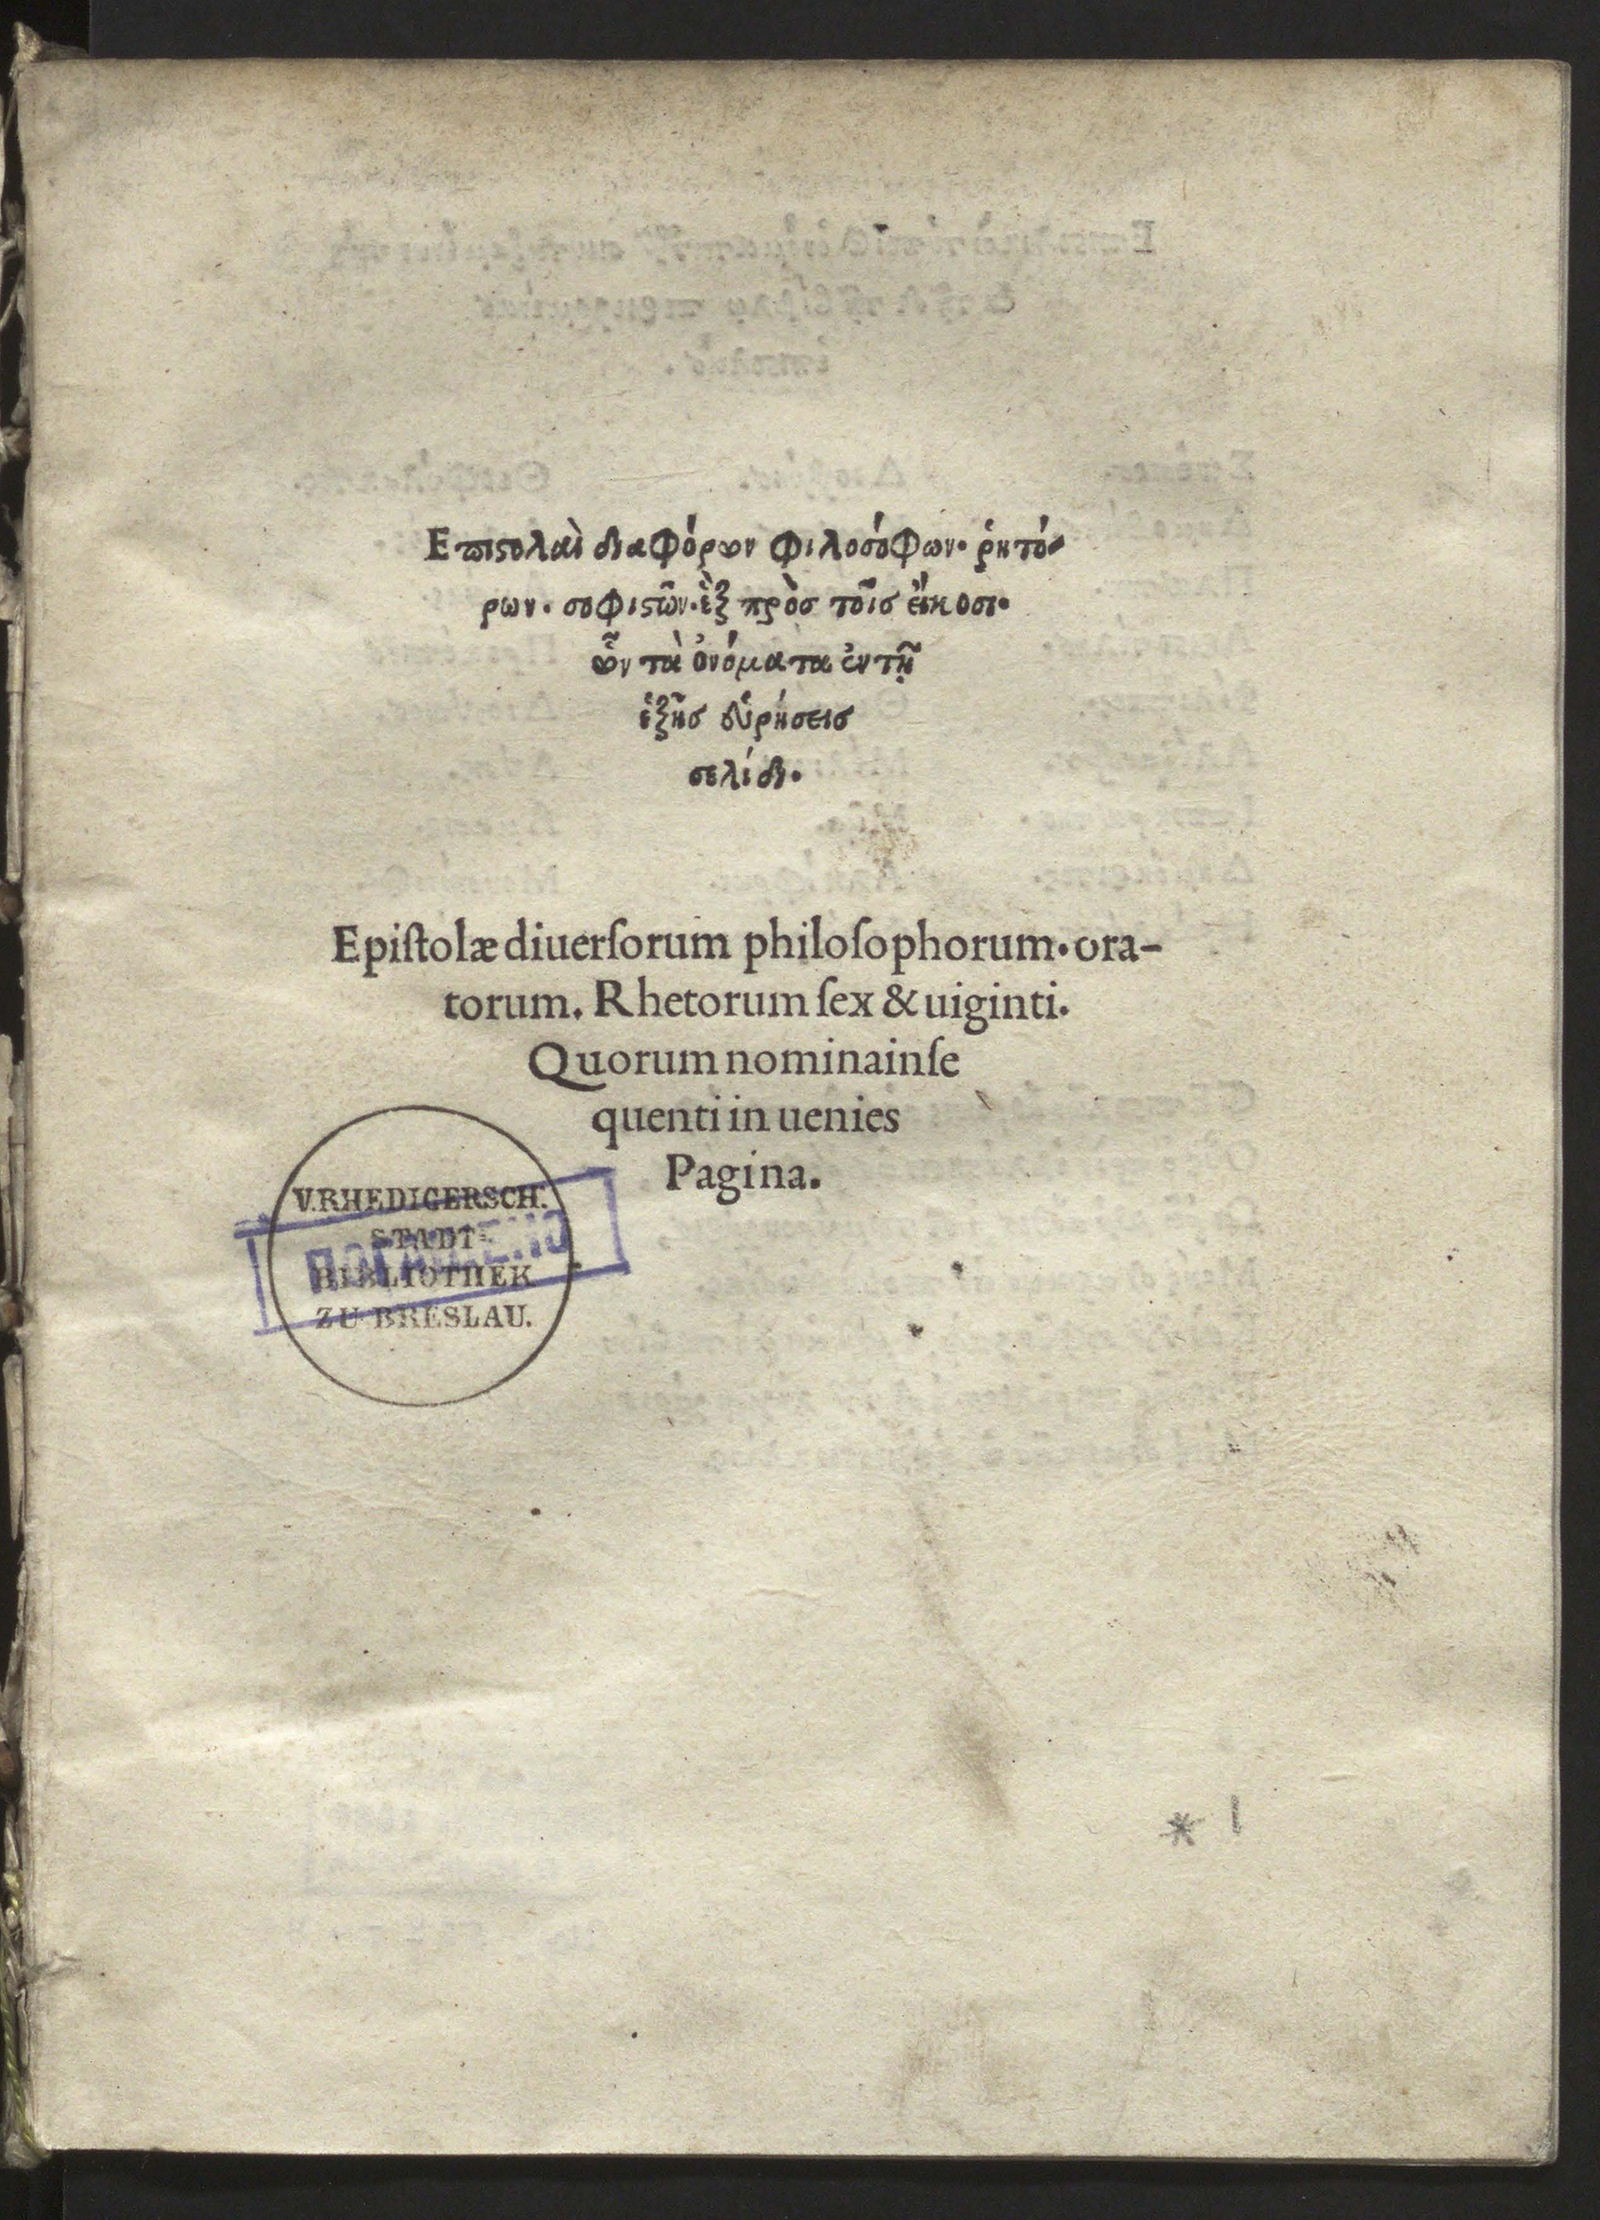 Επιϛολαὶ διαφόρων φιλοσόφων· ῥητό-
ρων· σοφιϛῶν· ἓξ πρὸσ τοῖσ εἴκοσι·
ὧν τὰ ὀνόματα ἐν τῇ
ἑξῆσ εὑρήσεισ
σελίδι·
Epiſtolæ diuerſorum philoſophorum· ora-
torum. Rhetorum ſex & uiginti.
Quorum nomina in ſe
quenti in uenies
Pagina.
V. RHEDIGERSCH.
STADT-
BIBLIOTHEK
ZU BRESLAU.
ПОГАШЕНО
* 1